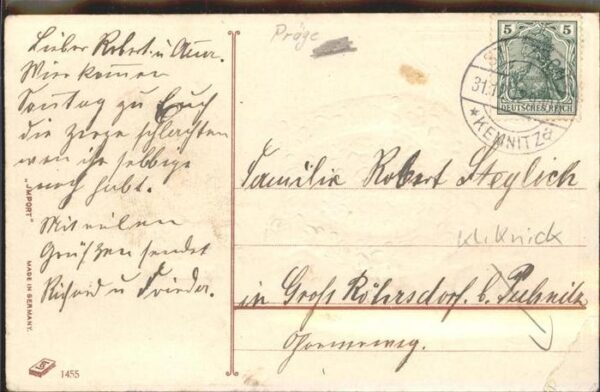 Präge
Lieber Robert u Anna.
Wir kommen
Sontag zu Euch
die Ziege schlachten
wen ihr selbige
noch habt.
Mit vielen
Grüßen sendet
Richard u Frieda.
5 5
DEUTSCHES REICH
31.1
* KEMNITZ
Familie Robert Steglich
kl. Knick
in Groß Röhrsdorf. b. Pulsnitz
"IMPORT"
MADE IN GERMANY.
1455